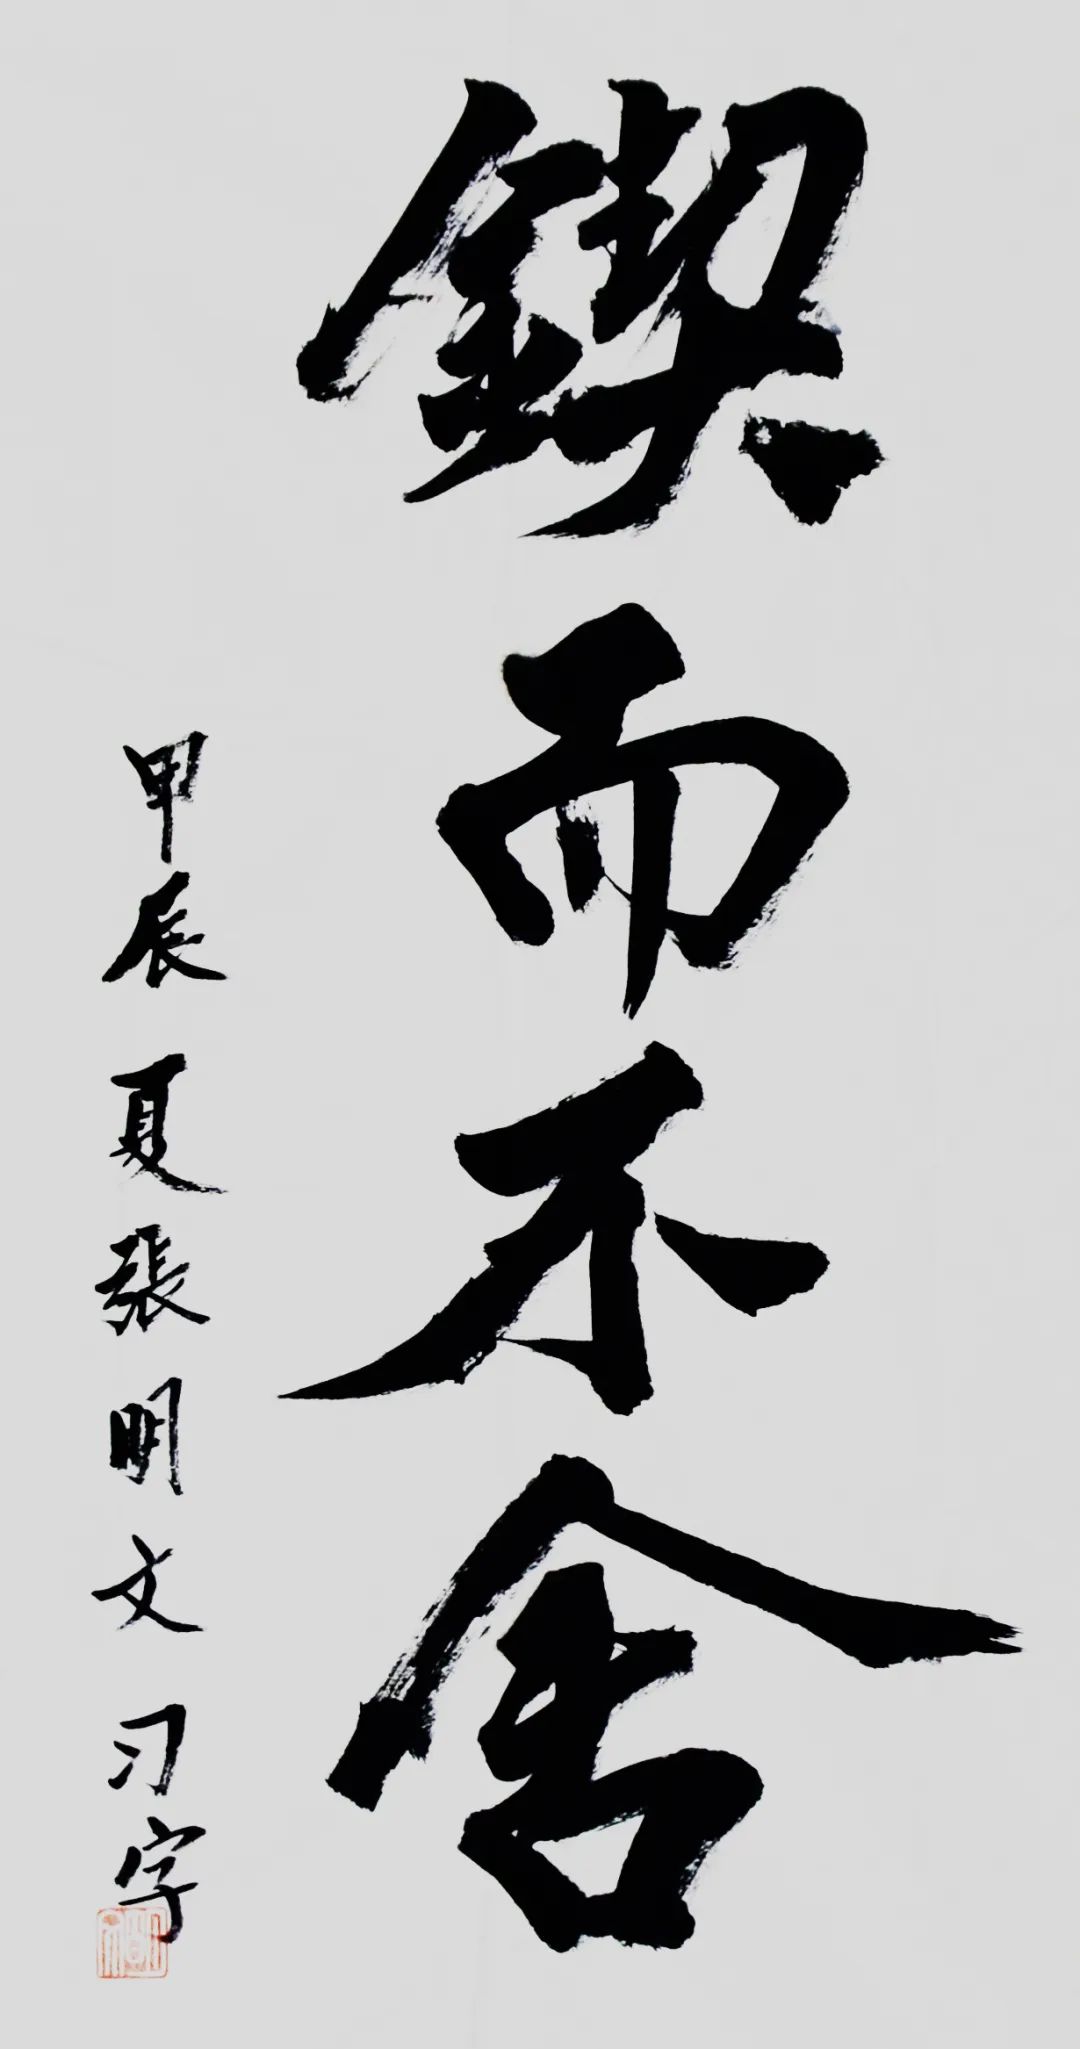 鍥而不舍
甲辰夏張明文习字